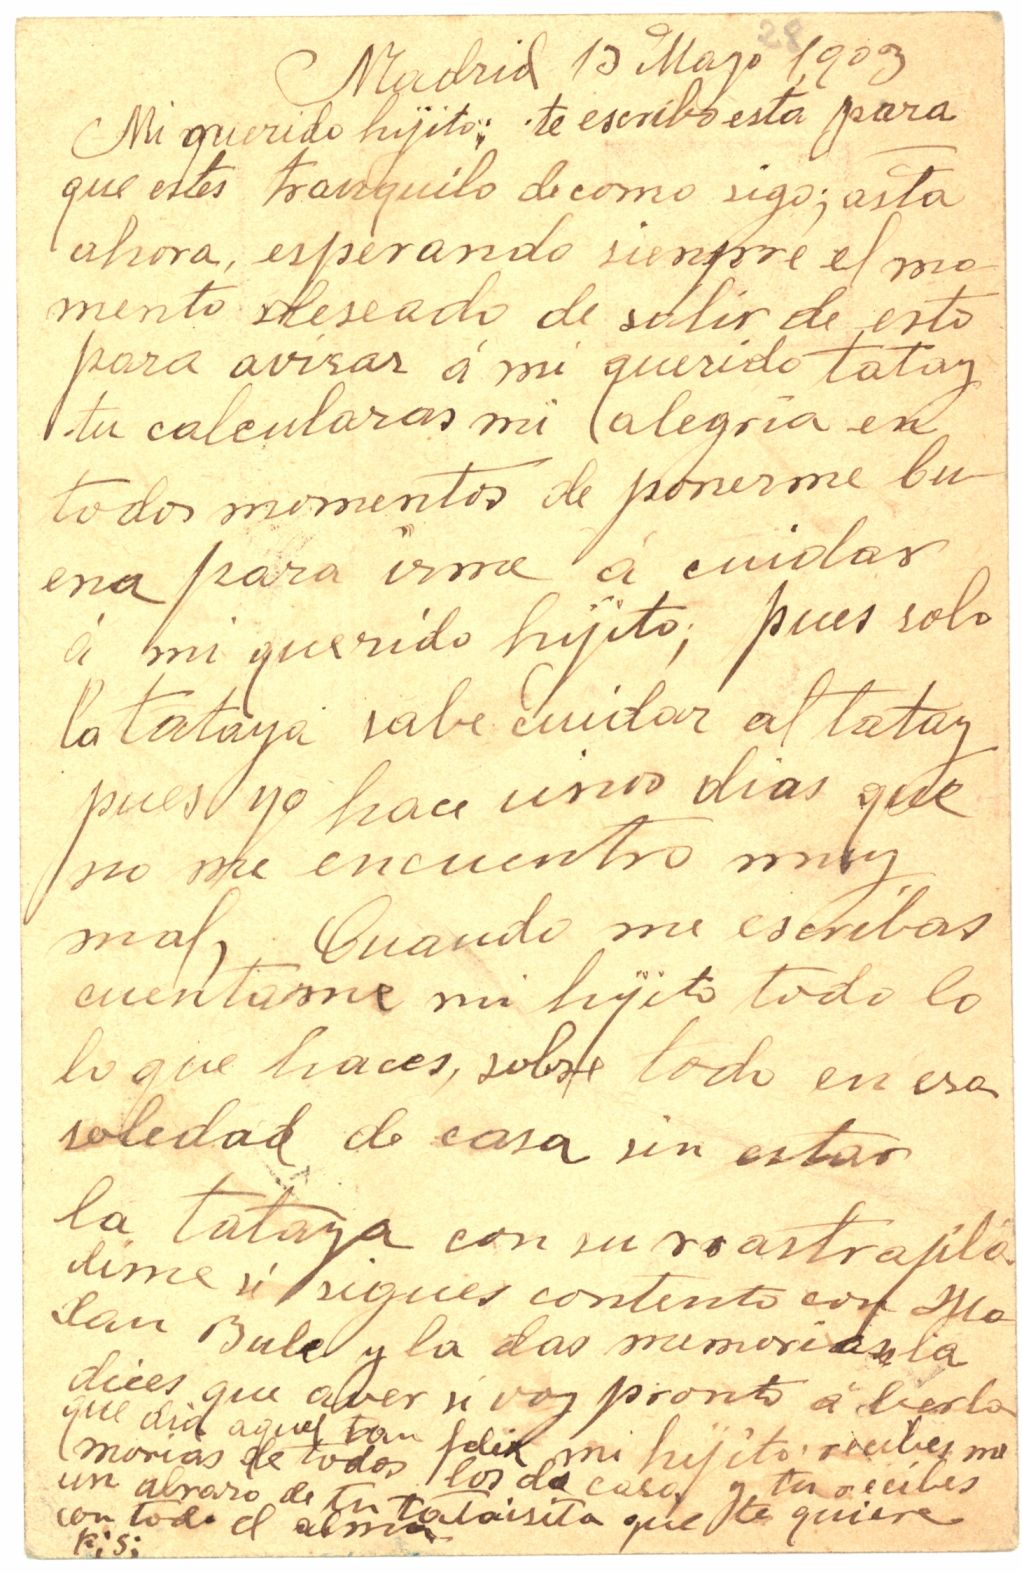 28
Madrid 13 Mayo 1903
Mi querido hijito; te escribo esta para
que estes tranquilo decomo sigo; asta
ahora, esperando sienpre el mo-
mento deseado de salir de esto
para avisar á mi querido tatay
tu calcularas mi alegria en
todos momentos de ponerme bu-
ena para irme á cuidar
á mi querido hijito; pues solo
la tataya sabe cuidar al tatay
pues yo hace unos dias que
no me encuentro muy
mal, Cuando me escribas
cuentame mi hijito todo lo
lo que haces, sobre todo en esa
soledad de casa sin estar
la tataya con su
dime si sigues contento con Ma
dan Bule y la das memorias la
dices que aver si voy pronto á berla
que dia aquel tan felix mi hijito recibes me
morias de todos los de casa y tu recibes
un abrazo de tu tataisita que te quiere
con todo el alma